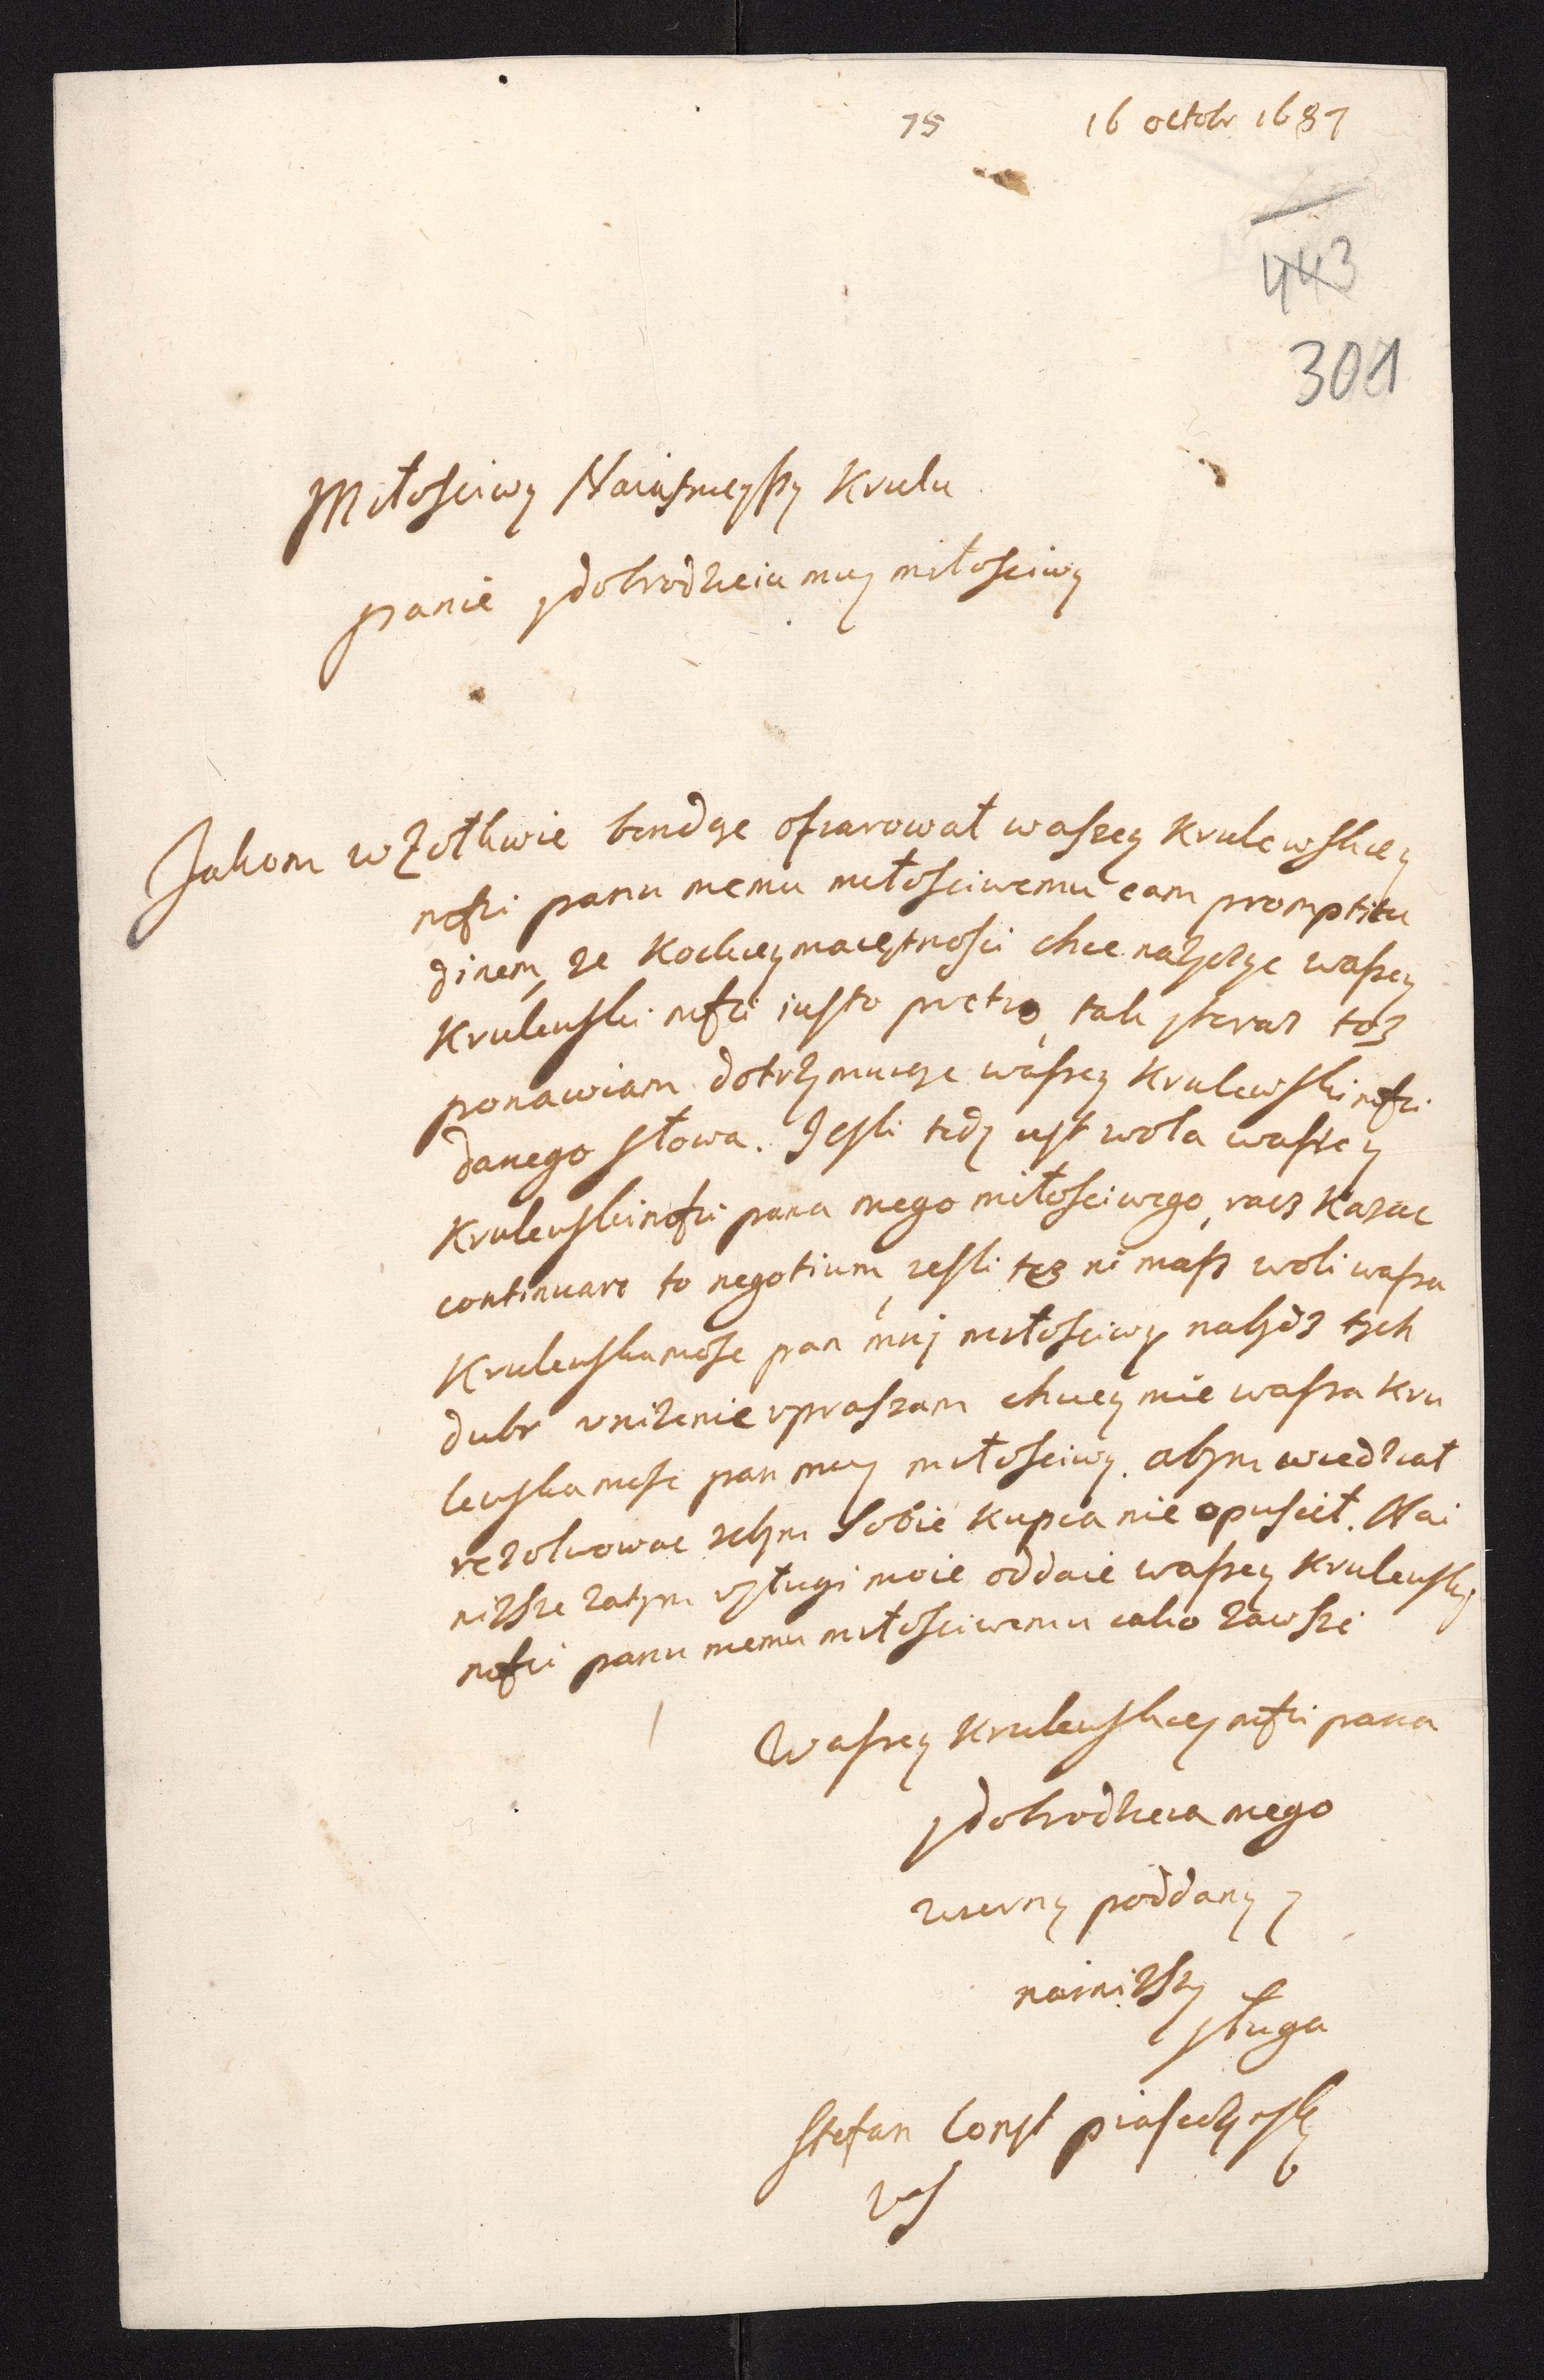 75 16 octobr 1687
443
301
Miłosciwy Naiasnieyszy Krulu
panie y dobrodzieiu muy miłosciwy
Jakom w Zołkwie bendąc ofiarował waszey Krulewskiey
msci panu memu miłosciwemu eam promptitu
dinem, ze Kockiey maiętnosci chce nazyczyc waszey
Krulewski msci iusto pretio, tak y teraz tosz
ponawiam dotrzymuiąc waszey Krulewski msci
danego słowa. Jesli tedy iest wola waszey
Krulewski msci pana mego miłosciwego, racz Kazac
continuare to negotium, iesli tesz ni masz woli wasza
Krulewska mosc pan muj miłosciwy nabydz tych
dubr unizenie upraszam chciey mie wasza Kru
lewska mosc pan muy miłosciwy. abym wiedział
rezolwowac zebym sobie kupca nie opuscił. Nai
nizsze zatym usługi moie oddaie waszey Krulewsky
msci panu memu miłosciwemu iako zawsze
Waszey Krulewskiey msci pana
y dobrodzieia mego
wierny poddany y
nainizszy
sługa
Stefan Const piaseczynsky